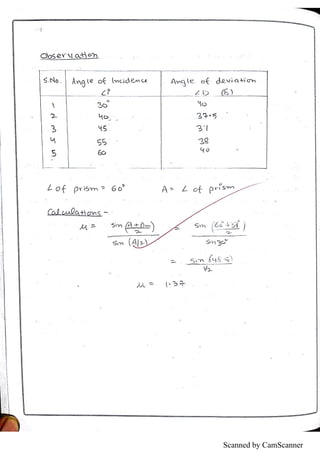 Observation
S.No. Angle of Incidence Angle of deviation
∠i ∠D (δ)
1 30° 40
2 40 37.5
3 45 31
4 55 38
5 60 40
∠ of prism = 60° A = ∠ of prism
Calculations -
μ = sin (A + Dm / 2) / sin (A/2) sin ( / 2) / sin 30°
= / ½
μ = 1.37
Scanned by CamScanner